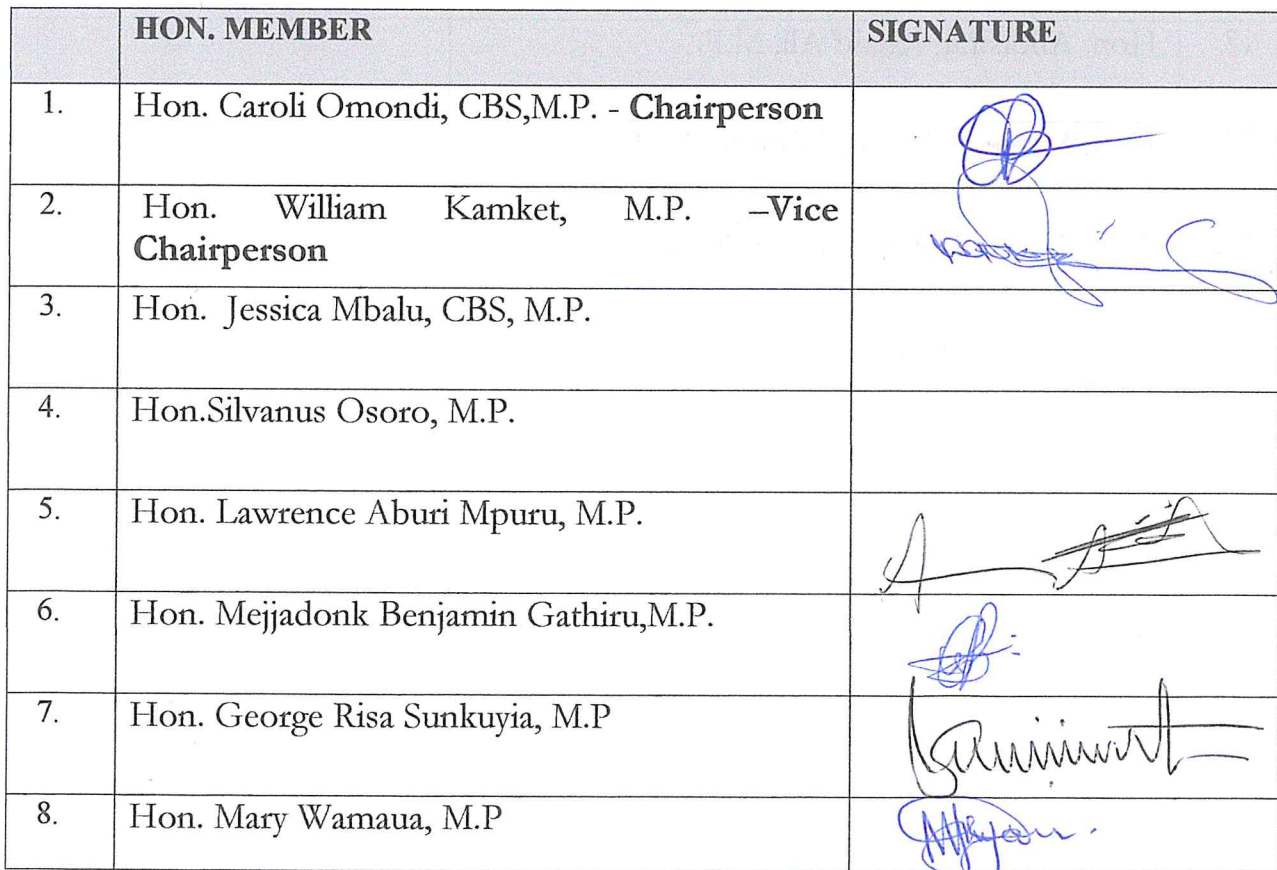 HON. MEMBER SIGNATURE
1. Hon. Caroli Omondi, CBS,M.P. - Chairperson
2. Hon. William Kamket, M.P. –Vice
Chairperson
3. Hon. Jessica Mbalu, CBS, M.P.
4. Hon.Silvanus Osoro, M.P.
5. Hon. Lawrence Aburi Mpuru, M.P.
6. Hon. Mejjadonk Benjamin Gathiru,M.P.
7. Hon. George Risa Sunkuyia, M.P
8. Hon. Mary Wamaua, M.P